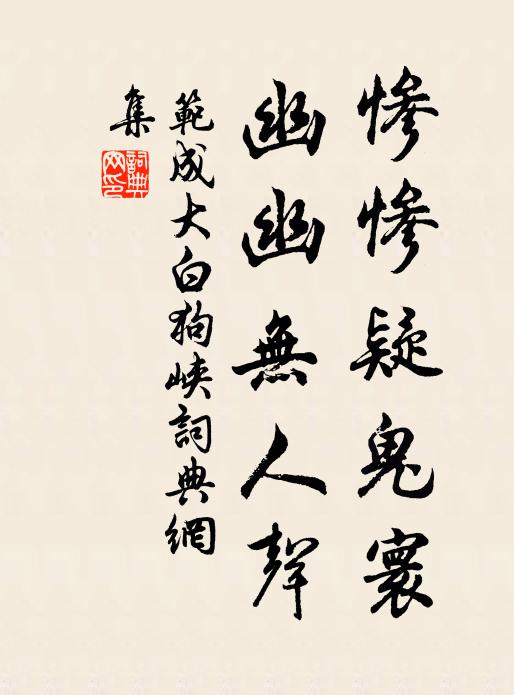 慘慘疑鬼寰
幽幽無人聲
範成大白狗峽詞典網
集
詞典
网印